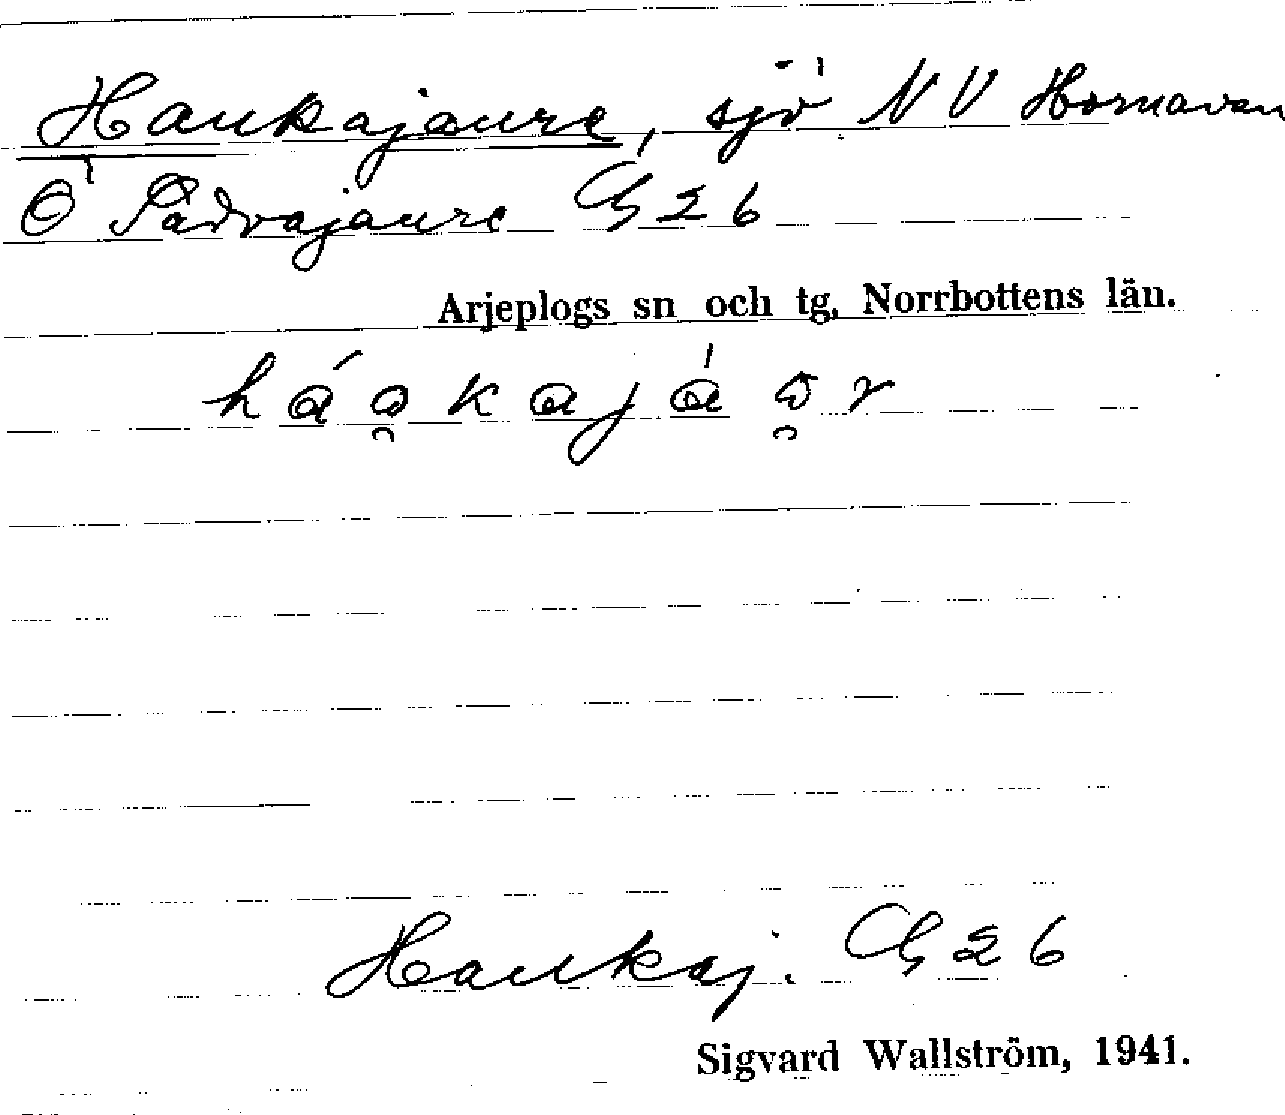 Haukajaure, sjö NV Hornavan
Ö Pädvajaure G 26
Arjeplogs sn och tg, Norrbottens län.
háu̯kajáu̯r
Haukaj. G 26
Sigvard Wallström, 1941.